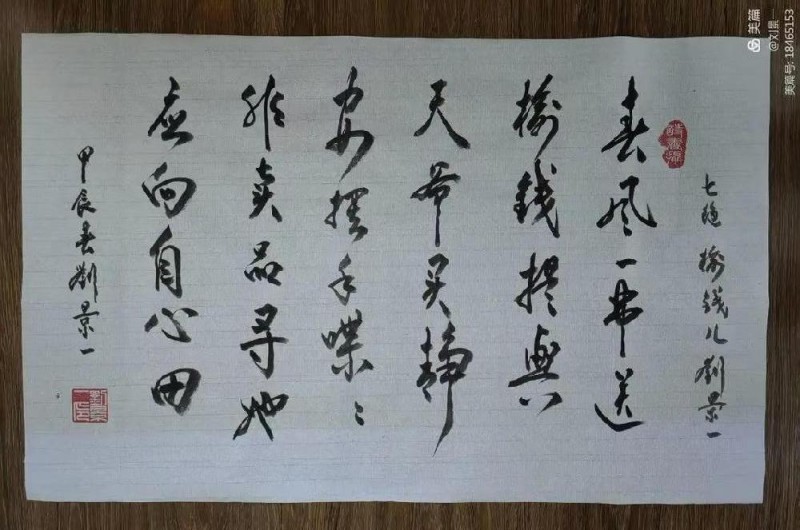 七絕 榆錢儿 劉景一
春风一串送
榆錢提與
天帝买静
安摆手喋喋
推卖品寻她
应向自心田
甲辰春劉景一
美篇
@刘景一
美篇号: 18465153